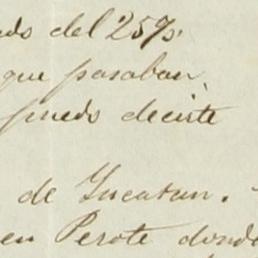 del 25%.
que pasaban
puedo decirte
de Yucatan.
en Perote donde